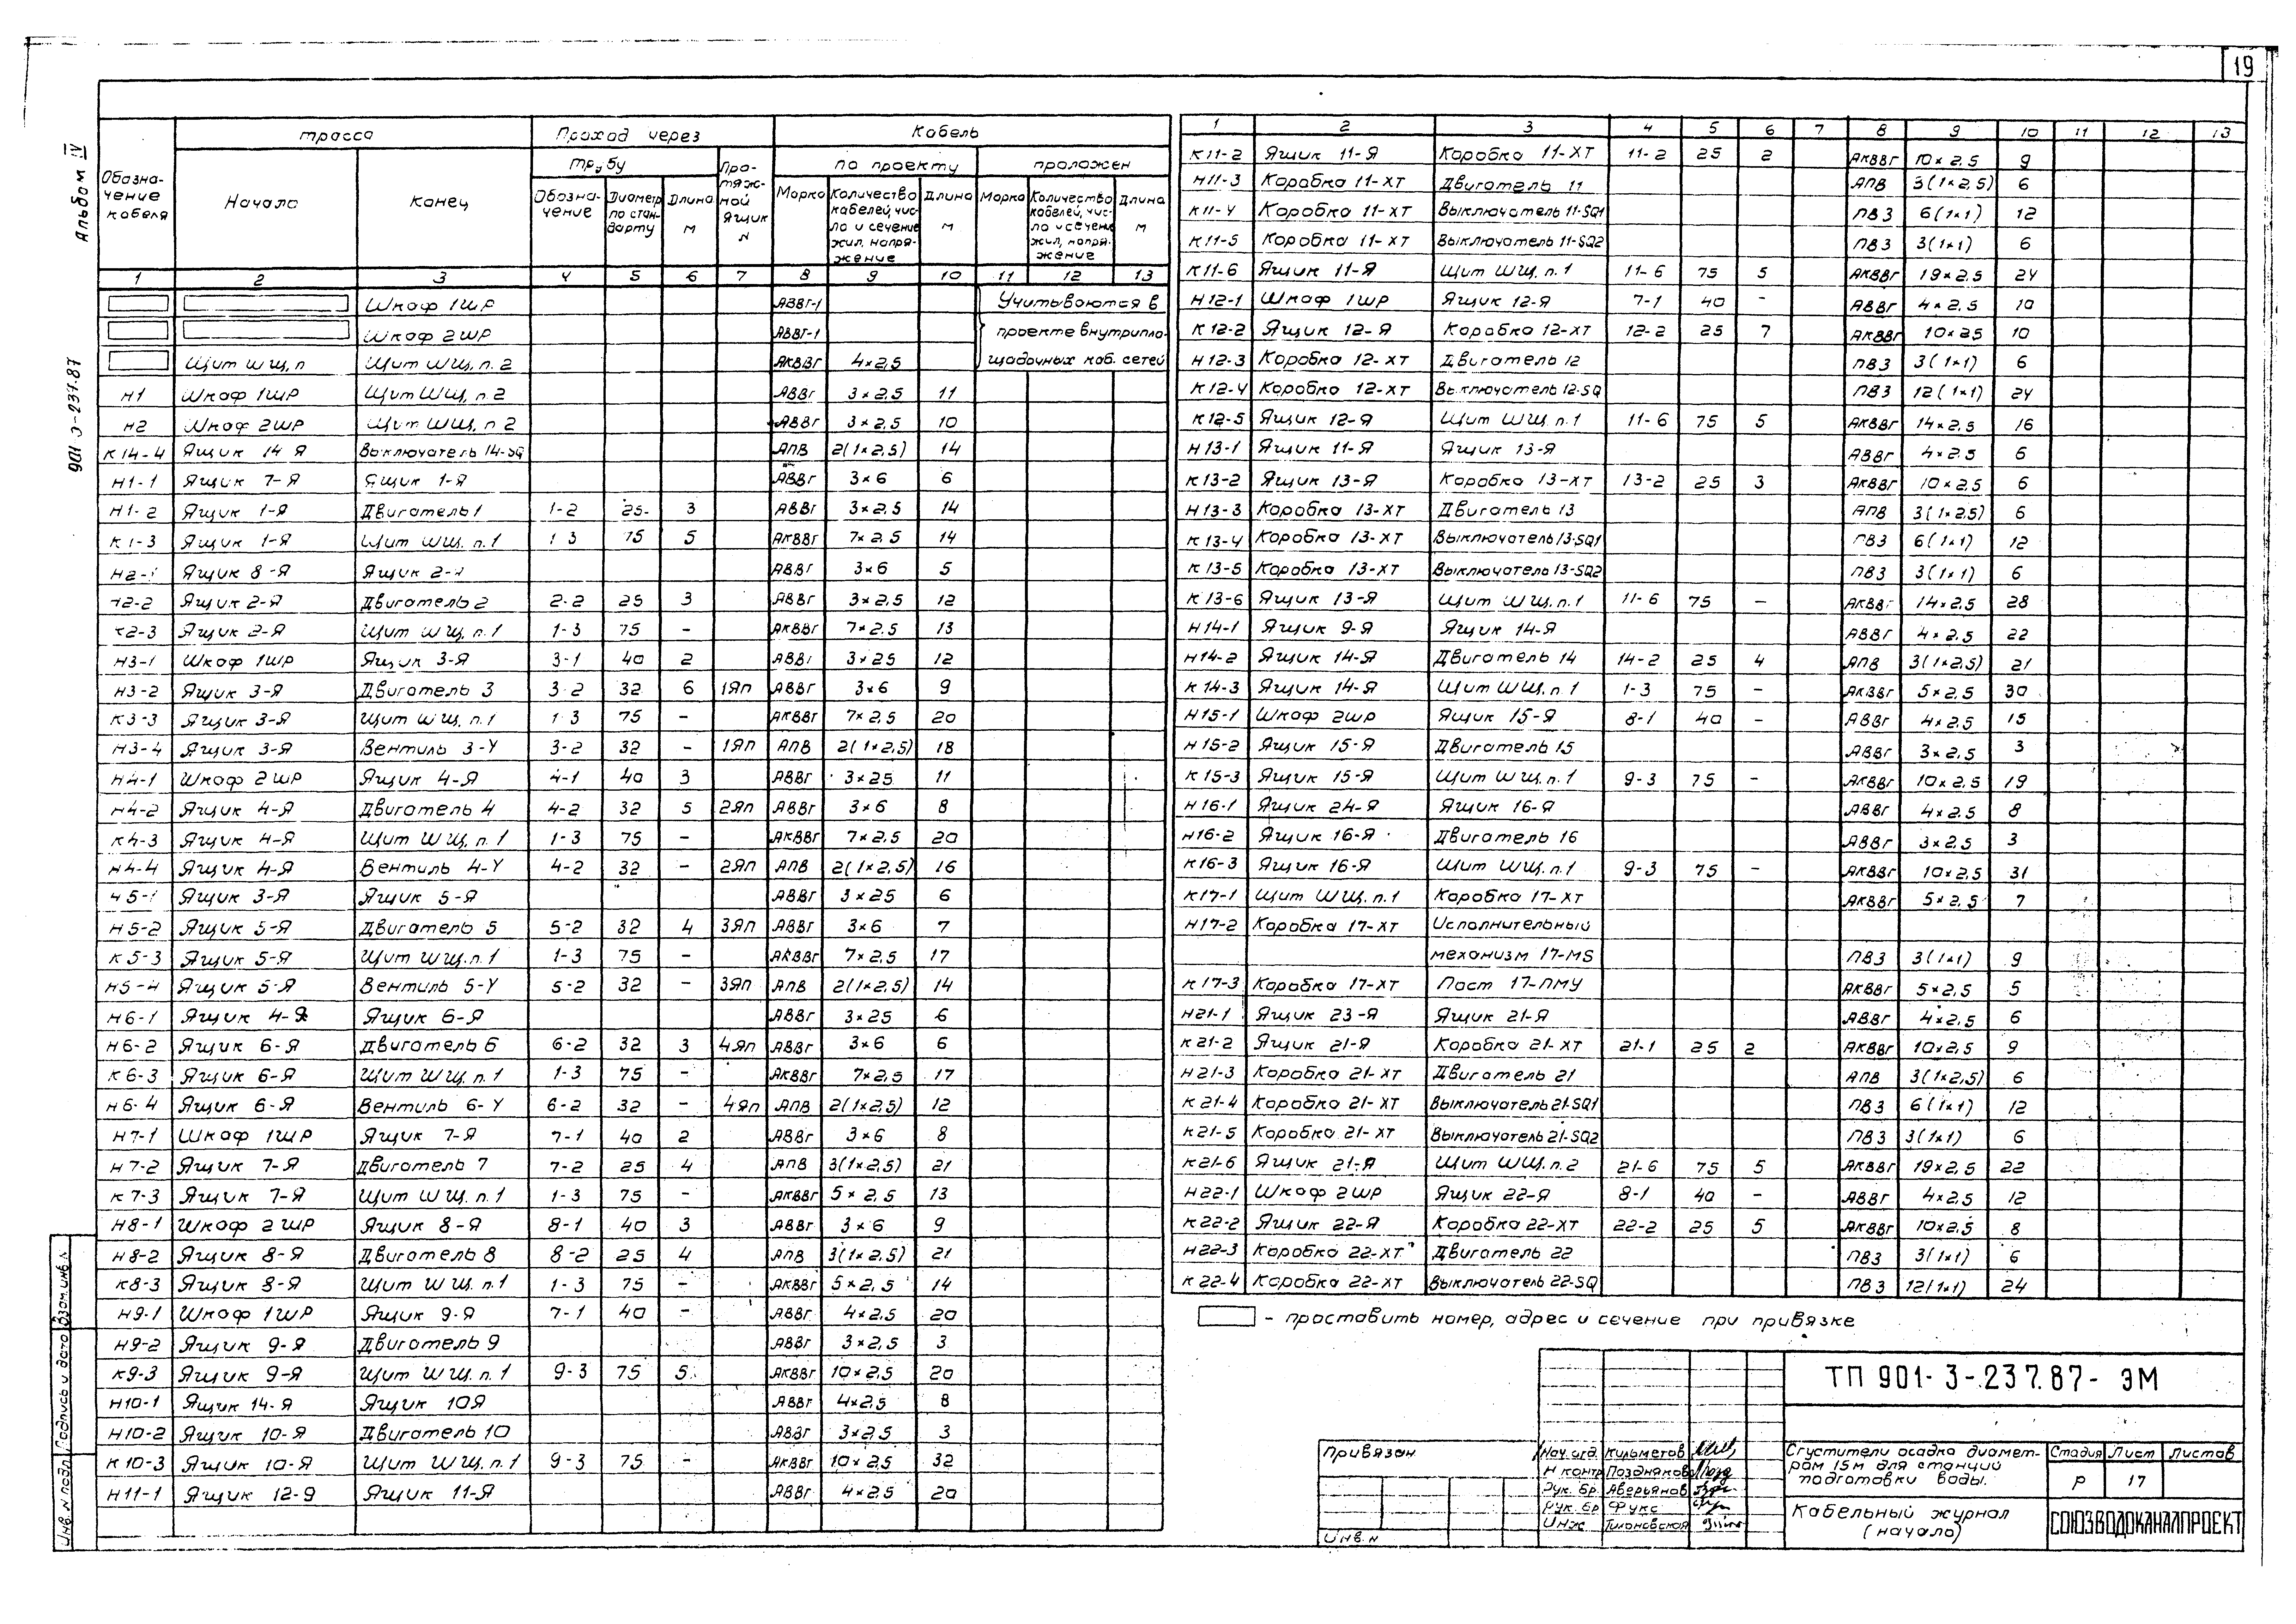 19
Альбом IV
901-3-237.87
Обозна-чение кабеля | Трасса | Проход через | Кабель
Начало | Конец | трубу | Про-тяж-ной ящик N | по проекту | проложен
Обозна-чение | Диаметр по стан-дарту | Длина м | Марка | Количество кабелей, чис-ло и сечение жил, напря-жение | Длина м | Марка | Количество кабелей, чис-ло и сечение жил, напря-жение | Длина м
1 2 3 4 5 6 7 8 9 10 11 12 13
Шкаф 1ШР АВВГ-1 Учитываются в
Шкаф 2ШР АВВГ-1 проекте внутрипло-
Щит ШЩ, п Щит ШЩ, п.2 АКВВГ 4×2,5 щадочных каб. сетей
Н1 Шкаф 1ШР Щит ШЩ, п.2 АВВГ 3×2,5 11
Н2 Шкаф 2ШР Щит ШЩ, п 2 АВВГ 3×2,5 10
К14-4 Ящик 14 Я Выключатель 14-SQ АПВ 2(1×2,5) 14
Н1-1 Ящик 7-Я Ящик 1-Я АВВГ 3×6 6
Н1-2 Ящик 1-Я Двигатель 1 1-2 25 3 АВВГ 3×2,5 14
К1-3 Ящик 1-Я Щит ШЩ. п.1 1 3 75 5 АКВВГ 7×2,5 14
Н2-1 Ящик 8-Я Ящик 2-Я АВВГ 3×6 5
Н2-2 Ящик 2-Я Двигатель 2 2-2 25 3 АВВГ 3×2,5 12
К2-3 Ящик 2-Я Щит ШЩ, п.1 1-3 75 - АКВВГ 7×2,5 13
Н3-1 Шкаф 1ШР Ящик 3-Я 3-1 40 2 АВВГ 3×25 12
Н3-2 Ящик 3-Я Двигатель 3 3-2 32 6 1ЯП АВВГ 3×6 9
К3-3 Ящик 3-Я Щит ШЩ, п.1 1-3 75 - АКВВГ 7×2,5 20
Н3-4 Ящик 3-Я Вентиль 3-У 3-2 32 - 1ЯП АПВ 2(1×2,5) 18
Н4-1 Шкаф 2ШР Ящик 4-Я 4-1 40 3 АВВГ 3×25 11
Н4-2 Ящик 4-Я Двигатель 4 4-2 32 5 2ЯП АВВГ 3×6 8
К4-3 Ящик 4-Я Щит ШЩ, п.1 1-3 75 - АКВВГ 7×2,5 20
Н4-4 Ящик 4-Я Вентиль 4-У 4-2 32 - 2ЯП АПВ 2(1×2,5) 16
Н5-1 Ящик 3-Я Ящик 5-Я АВВГ 3×25 6
Н5-2 Ящик 5-Я Двигатель 5 5-2 32 4 3ЯП АВВГ 3×6 7
К5-3 Ящик 5-Я Щит ШЩ. п.1 1-3 75 - АКВВГ 7×2,5 17
Н5-4 Ящик 5-Я Вентиль 5-У 5-2 32 - 3ЯП АПВ 2(1×2,5) 14
Н6-1 Ящик 4-Я Ящик 6-Я АВВГ 3×25 6
Н6-2 Ящик 6-Я Двигатель 6 6-2 32 3 4ЯП АВВГ 3×6 6
К6-3 Ящик 6-Я Щит ШЩ, п.1 1-3 75 - АКВВГ 7×2,5 17
Н6-4 Ящик 6-Я Вентиль 6-У 6-2 32 - 4ЯП АПВ 2(1×2,5) 12
Н7-1 Шкаф 1ШР Ящик 7-Я 7-1 40 2 АВВГ 3×6 8
Н7-2 Ящик 7-Я Двигатель 7 7-2 25 4 АПВ 3(1×2,5) 21
К7-3 Ящик 7-Я Щит ШЩ. п.1 1-3 75 - АКВВГ 5×2,5 13
Н8-1 Шкаф 2ШР Ящик 8-Я 8-1 40 3 АВВГ 3×6 9
Н8-2 Ящик 8-Я Двигатель 8 8-2 25 4 АПВ 3(1×2,5) 21
К8-3 Ящик 8-Я Щит ШЩ. п.1 1-3 75 - АКВВГ 5×2,5 14
Н9-1 Шкаф 1ШР Ящик 9-Я 7-1 40 - АВВГ 4×2,5 20
Н9-2 Ящик 9-Я Двигатель 9 АВВГ 3×2,5 3
К9-3 Ящик 9-Я Щит ШЩ, п.1 9-3 75 5 АКВВГ 10×2,5 20
Н10-1 Ящик 14-Я Ящик 10Я АВВГ 4×2,5 8
Н10-2 Ящик 10-Я Двигатель 10 АВВГ 3×2,5 3
К10-3 Ящик 10-Я Щит ШЩ, п.1 9-3 75 - АКВВГ 10×2,5 32
Н11-1 Ящик 12-Я Ящик 11-Я АВВГ 4×2,5 20
1 2 3 4 5 6 7 8 9 10 11 12 13
К11-2 Ящик 11-Я Коробка 11-ХТ 11-2 25 2 АКВВГ 10×2,5 9
Н11-3 Коробка 11-ХТ Двигатель 11 АПВ 3(1×2,5) 6
К11-4 Коробка 11-ХТ Выключатель 11-SQ1 ПВ3 6(1×1) 12
К11-5 Коробка 11-ХТ Выключатель 11-SQ2 ПВ3 3(1×1) 6
К11-6 Ящик 11-Я Щит ШЩ, п.1 11-6 75 5 АКВВГ 19×2,5 24
Н12-1 Шкаф 1ШР Ящик 12-Я 7-1 40 - АВВГ 4×2,5 10
К12-2 Ящик 12-Я Коробка 12-ХТ 12-2 25 7 АКВВГ 10×25 10
Н12-3 Коробка 12-ХТ Двигатель 12 ПВ3 3(1×1) 6
К12-4 Коробка 12-ХТ Выключатель 12-SQ ПВ3 12(1×1) 24
К12-5 Ящик 12-Я Щит ШЩ. п.1 11-6 75 5 АКВВГ 14×2,5 16
Н13-1 Ящик 11-Я Ящик 13-Я АВВГ 4×2,5 6
К13-2 Ящик 13-Я Коробка 13-ХТ 13-2 25 3 АКВВГ 10×2,5 6
Н13-3 Коробка 13-ХТ Двигатель 13 АПВ 3(1×2,5) 6
К13-4 Коробка 13-ХТ Выключатель 13-SQ1 ПВ3 6(1×1) 12
К13-5 Коробка 13-ХТ Выключатель 13-SQ2 ПВ3 3(1×1) 6
К13-6 Ящик 13-Я Щит ШЩ. п.1 11-6 75 - АКВВГ 14×2,5 28
Н14-1 Ящик 9-Я Ящик 14-Я АВВГ 4×2,5 22
Н14-2 Ящик 14-Я Двигатель 14 14-2 25 4 АПВ 3(1×2,5) 21
К14-3 Ящик 14-Я Щит ШЩ, п.1 1-3 75 - АКВВГ 5×2,5 30
Н15-1 Шкаф 2ШР Ящик 15-Я 8-1 40 - АВВГ 4×2,5 15
Н15-2 Ящик 15-Я Двигатель 15 АВВГ 3×2,5 3
К15-3 Ящик 15-Я Щит ШЩ, п.1 9-3 75 - АКВВГ 10×2,5 19
Н16-1 Ящик 24-Я Ящик 16-Я АВВГ 4×2,5 8
Н16-2 Ящик 16-Я Двигатель 16 АВВГ 3×2,5 3
К16-3 Ящик 16-Я Щит ШЩ, п.1 9-3 75 - АКВВГ 10×2,5 31
К17-1 Щит ШЩ, п.1 Коробка 17-ХТ АКВВГ 5×2,5 7
Н17-2 Коробка 17-ХТ Исполнительный
механизм 17-MS ПВ3 3(1×1) 9
К17-3 Коробка 17-ХТ Пост 17-ПМУ АКВВГ 5×2,5 5
Н21-1 Ящик 23-Я Ящик 21-Я АВВГ 4×2,5 6
К21-2 Ящик 21-Я Коробка 21-ХТ 21-1 25 2 АКВВГ 10×2,5 9
Н21-3 Коробка 21-ХТ Двигатель 21 АПВ 3(1×2,5) 6
К21-4 Коробка 21-ХТ Выключатель 21-SQ1 ПВ3 6(1×1) 12
К21-5 Коробка 21-ХТ Выключатель 21-SQ2 ПВ3 3(1×1) 6
К21-6 Ящик 21-Я Щит ШЩ. п.2 21-6 75 5 АКВВГ 19×2,5 22
Н22-1 Шкаф 2ШР Ящик 22-Я 8-1 40 - АВВГ 4×2,5 12
К22-2 Ящик 22-Я Коробка 22-ХТ 22-2 25 5 АКВВГ 10×2,5 8
Н22-3 Коробка 22-ХТ Двигатель 22 ПВ3 3(1×1) 6
К22-4 Коробка 22-ХТ Выключатель 22-SQ ПВ3 12(1×1) 24
- проставить номер, адрес и сечение при привязке
ТП 901-3-237.87-ЭМ
Привязан
Инв. N
Нач. отд. Кильметов
Н контр Позднякова
Рук. бр. Аверьянов
Рук. бр Фукс
Инж Тихановская
Сгустители осадка диамет-
ром 15м для станций
подготовки воды.
Стадия Лист Листов
Р 17
Кабельный журнал
(начало)
СОЮЗВОДОКАНАЛПРОЕКТ
Инв. N подл. Подпись и дата Взам. инв. N